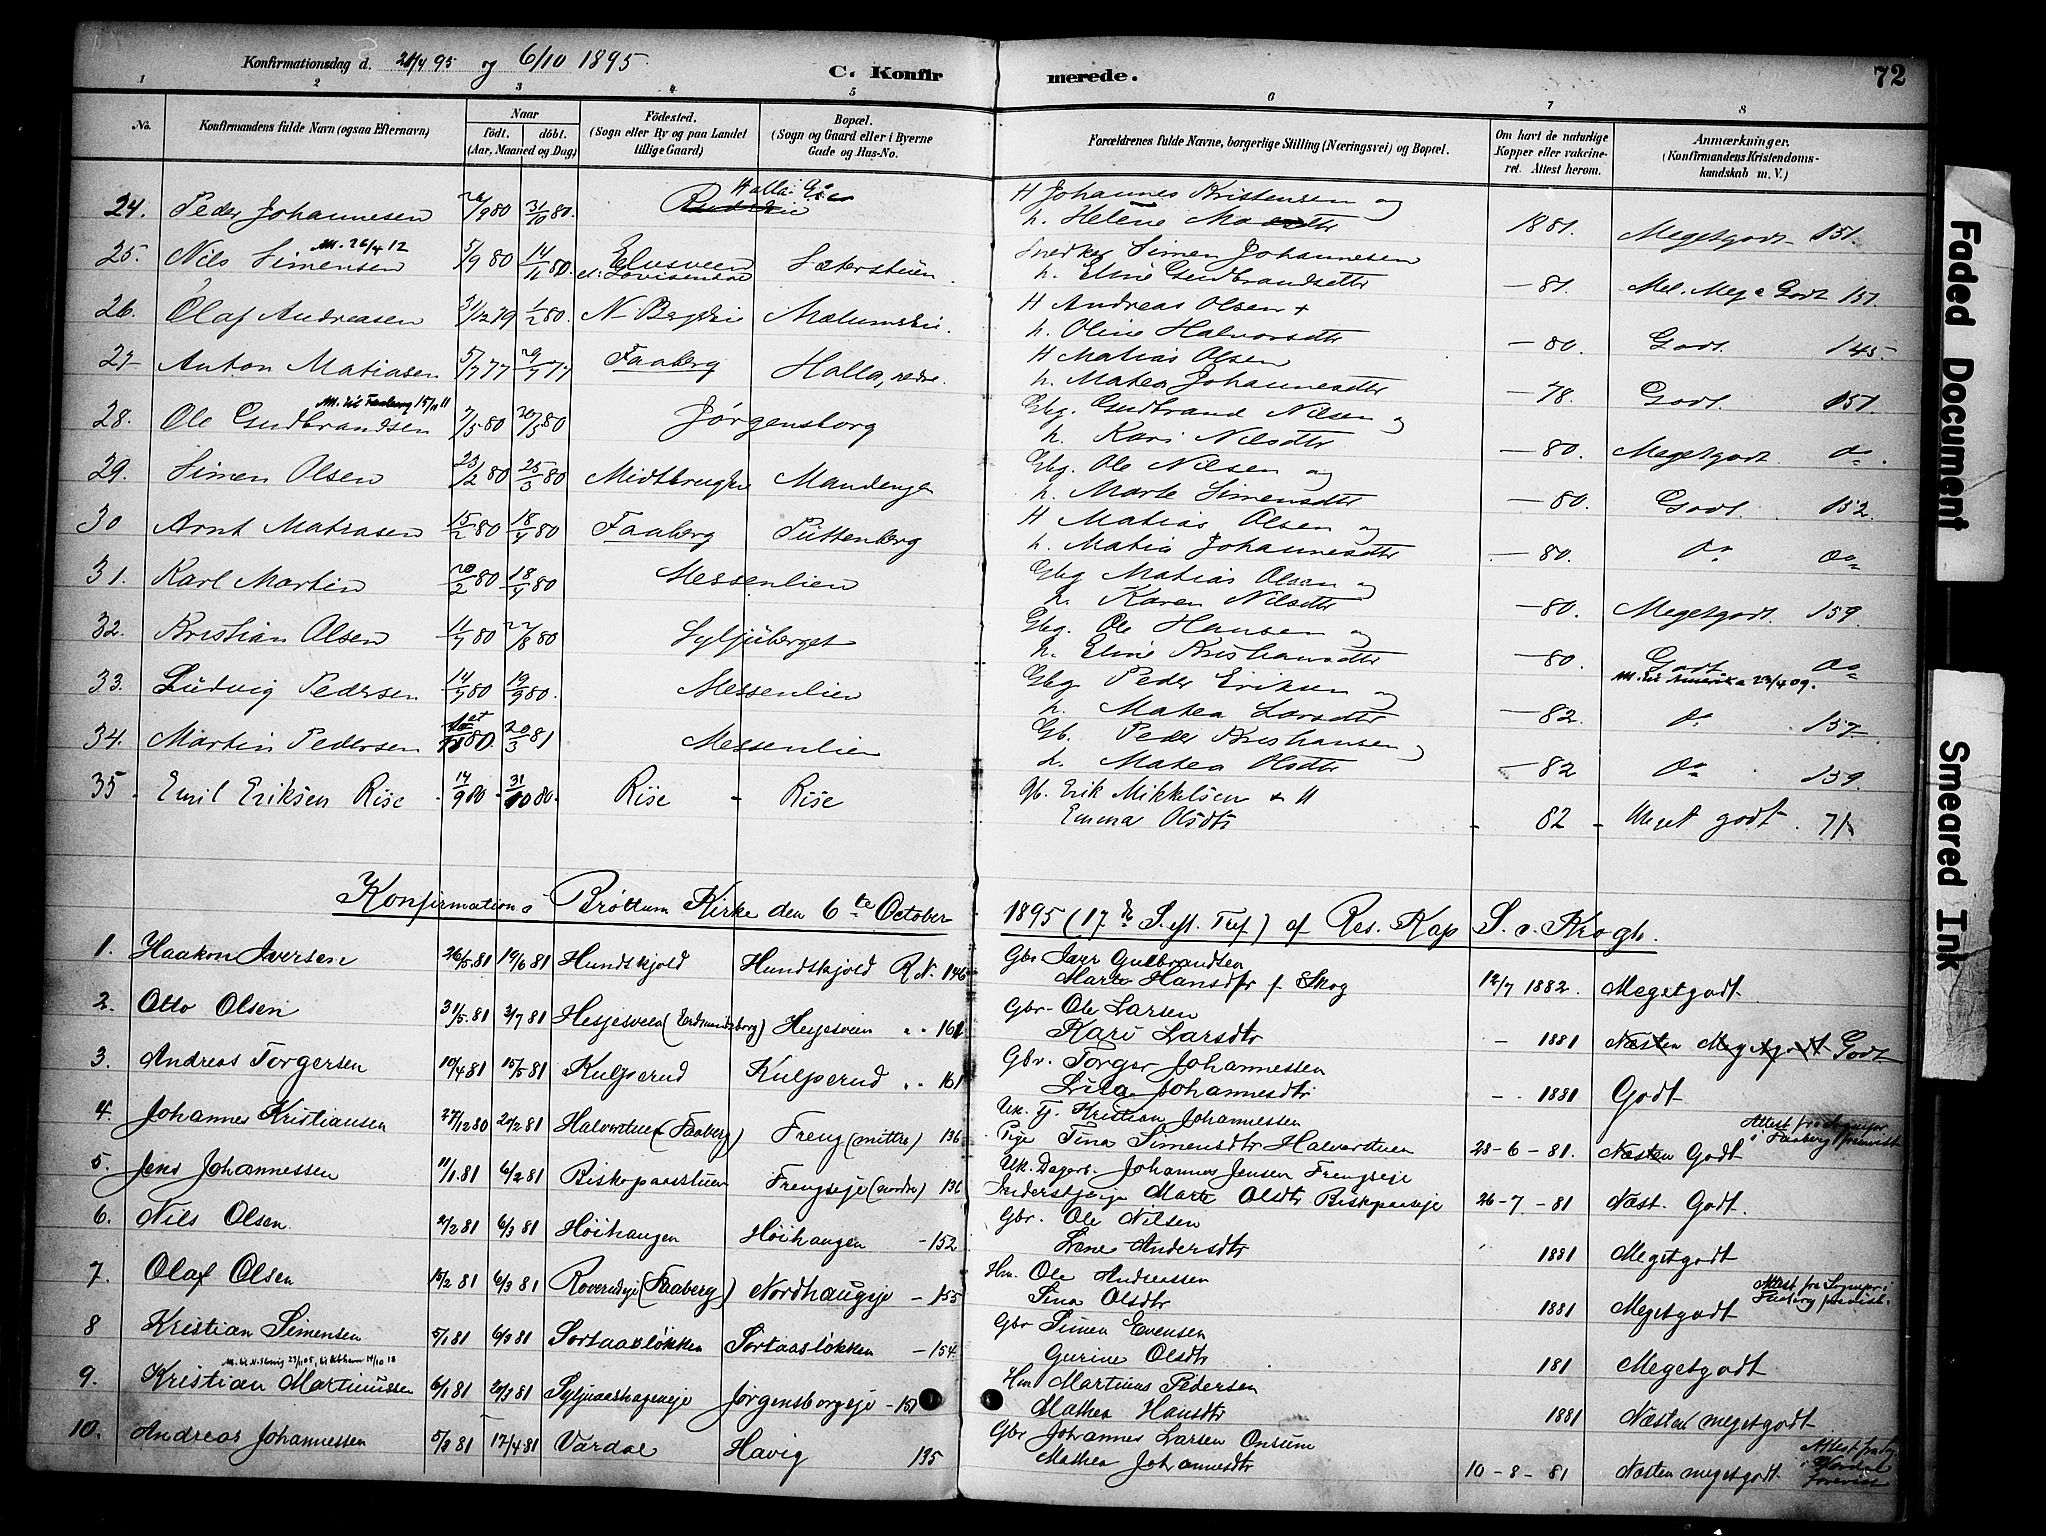 Konfirmationsdag d. 21/4 95 og 6/10 1895
C. Konfirmerede.
72
1 2 3 4 5 6 7 8
No. Konfirmandens fulde Navn (ogsaa Efternavn) Naar født. døbt. (Aar, Maaned og Dag) Fødested. (Sogn eller By og paa Landet tillige Gaard) Bopæl. (Sogn og Gaard eller i Byerne Gade og Hus-No. Forældrenes fulde Navne, borgerlige Stilling (Næringsvei) og Bopæl. Om havt de naturlige Kopper eller vakcineret. Attest herom. Anmærkninger. (Konfirmandens Kristendomskundskab m. V.)
24. Peder Johannesen /9 80 31/10 80. H Johannes Kristensen og
h. Helene 1881. Megetgodt 151.
M. 26/4 12
25. Nils Simensen 5/9 80 14/11 80. Sæterstuen Snedker Simen Johannesen
h. Eline Gudbrandsdtr — 81. Mel. Meg. & Godt 151.
26. Olaf Andreasen 31/12 79 1/2 80. Mælumsbie. H Andreas Olsen +
h. Oline Halvorsdtr — 80. Godt. 145.
27 Anton Matiasen 5/7 77 29/7 77 Faaberg Holla, nedre. H Matias Olsen
h. Matea Johannesdtr — 78. Godt. 151.
M. til Faaberg 15/10 11
28. Ole Gudbrandsen 7/5 80 20/5 80 Jørgensborg Gbg. Gudbrand Nilsen og
h. Kari Nilsdtr — 80. Megetgodt. Do.
29. Simen Olsen 23/2 80 25/3 80 Mandenga Gbg. Ole Nilsen og
h. Marte Simensdtr — 80. Godt. 152.
30 Arnt Matiasen 15/2 80 18/4 80 Faaberg Püttenberg H Matias Olsen og
h. Matia Johannesdtr — 80. Do Do
31. Karl Martin 20/2 80 18/4 80 Messenlien Gbg Matias Olsen og
h. Karen Nilsdtr — 80. Megetgodt. 159.
32. Kristian Olsen 11/7 80 22/8 80 Syljuberget Gbg. Ole Hansen og
h. Eline Kristiansdtr — 80. Godt Do
M. til Amerika 23/4 09.
33. Ludvig Pedersen 14/9 80 19/9 80. Messenlien Gbg Peder Eriksen og
h. Matea Larsdtr — 82. Do 157.
34. Martin Pedersen 80. 20/3 81 Messenlien Gb. Peder Kristiansen og
h. Matea Olsdtr — 82 Do 159.
35. Emil Eriksen Rise 14/9 80 31/10 80. Rise - Rise Gb. Erik Mikkelsen + H
Emma Olsdtr - 82 - Meget godt. 71.
Konfirmation i Brøttum Kirke den 6te October 1895 (17de S. eft. Tref) af Res. Kap S. v. Krogh.
1. Haakon Iversen 26/5 81 19/6 81 Hundskjold Hundskjold R.N. 146 Gbr Iver Gulbrandsen
Marte Hansdtr f. Skog 12/7 1882. Megetgodt
2. Otto Olsen 31/5 81 3/7 81 Hesjesveen (Erdmundsborg) Hesjesveen " 161 Gbr. Ole Larsen
Kari Larsdtr - 1881 Næsten Megetgodt Godt
3. Andreas Torgersen 10/4 81 15/5 81 Kulperud Kulperud " 161 Gbr. Torger Johannessen
Lisa Johannesdtr - 1881 Godt
4. Johannes Kristiansen 27/12 80 20/2 81 Halvorstuen (Faaberg) Freng (mittre) 136 Uk. Tj. Kristian Johannessen
Pige Tina Simensdtr Halvorstuen 28-6-81. Næsten Godt Attest fra Sognepr. i Faaberg
5. Jens Johannessen 11/1 81 6/2 81 Biskopaasstuen Frengseje (nordre) 136 Uk. Dagarb. Johannes Jensen Frengseje
Inderstpige Marte Olsdtr Biskopaaseje 26-7-81 Næst. Godt.
6. Nils Olsen 2/2 81 6/3 81 Høihaugen Høihaugen - 152 Gbr. Ole Nilsen
Lene Andersdtr " 1881 Megetgodt
7. Olaf Olsen 15/2 81 6/3 81 Roverudeje (Faaberg) Nordhaugseje - 155 Hm. Ole Andreassen
Sina Olsdtr 1881 Megetgodt Attest fra Sognepr. i Faaberg
8 Kristian Simensen 5/1 81 6/3 81 Sortaasløkken Sortaasløkken - 154. Gbr Simen Evensen
Gurine Olsdtr 181 Megetgodt
9. Kristian Martinussen 6/1 81 20/3 81 Jørgensborgseje - 151 Hm Martinus Pedersen
Mathea Hansdtr 1881 Næsten megetgodt
10. Andreas Johannessen 5/3 81 17/4 81 Vardal Havig 135 Gbr Johannes Larsen Onsum
Mathea Johannesdtr 10-8-81 Næsten megetgodt. Attest fra
Faded Document
Smeared Ink